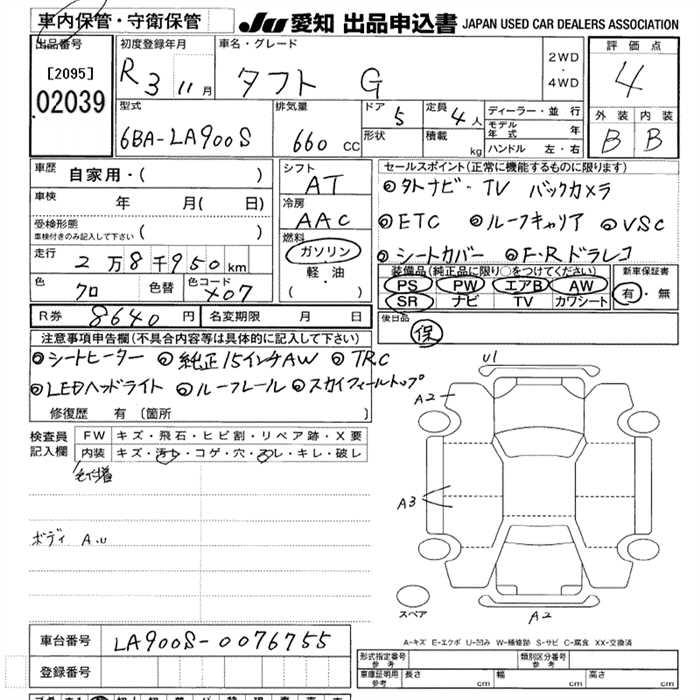 車内保管・守衛保管
JU 愛知 出品申込書 JAPAN USED CAR DEALERS ASSOCIATION
出品番号
[2095]
02039
初度登録年月
R 3 11月
車名・グレード
タフト G
2WD
・
4WD
評価点
4
型式
6BA-LA900S
排気量
660 CC
ドア 5
形状
定員 4人
積載 kg
ディーラー・並行
モデル年式 年
ハンドル 左・右
外装 内装
B B
車歴 自家用・( )
車検 年 月( 日)
受検形態
車検付きのみ記入して下さい ( )
走行 2万8千950km
色 クロ
色替
色コード X07
シフト AT
冷房 AAC
燃料
ガソリン
軽・油
( ・ )
セールスポイント(正常に機能するものに限ります)
◎外ナビ・TV バックカメラ
◎ETC ◎ルーフキャリア ◎VSC
◎シートカバー ◎F・Rドラレコ
装備品(純正品に限り○をつけてください)
PS PW エアB AW
SR ナビ TV カワシート
新車保証書
有・無
R券 8640円
名変期限 月 日
後日品
保
注意事項申告欄(不具合内容等は具体的に記入して下さい)
◎シートヒーター ◎純正15インチAW ◎TRC
◎LEDヘッドライト ◎ルーフレール ◎スカイフィールトップ
修復歴 有 〔箇所 〕
検査員
記入欄
FW キズ・飛石・ヒビ割・リペア跡・X要
内装 キズ・汚レ・コゲ・穴・スレ・キレ・破レ
ボディ A.U
U1
A2
A3
A2
スペア
A-キズ E-エクボ U-凹み W-補修跡 S-サビ C-腐食 XX-交換済
車台番号 LA900S-0076755
登録番号
形式指定番号
参考
類別区分番号
参考
車庫証明用
参考
長さ cm 幅 cm 高さ cm